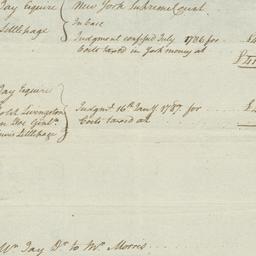 Jay Esquire New York Supreme Court
In Case
Littlepage Judgment confessed July 1786 for
Costs taxed in York money at
Jay Esquire
Livingston Judgmt. 16th Jany. 1787. for
Costs taxed at
Lewis Littlepage
Mr. Jay Dr. to Mr. Morris